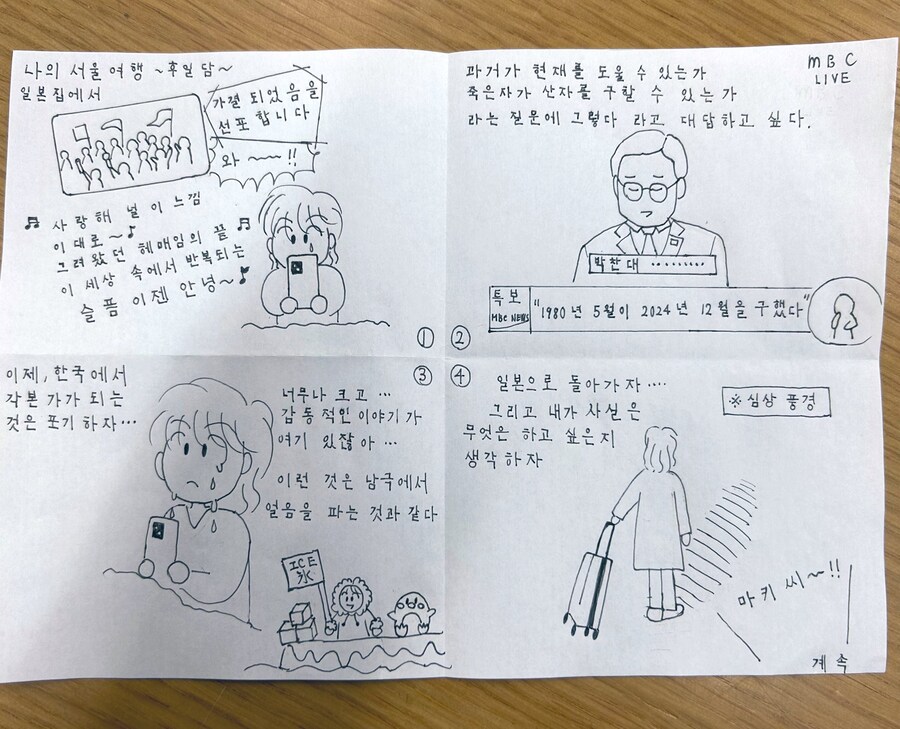 나의 서울 여행 ~후일담~
일본집에서
가결 되었음을
선포 합니다
와 ~~~ !!
사랑해 널 이 느낌
이대로~
그려왔던 헤매임의 끝
이 세상 속에서 반복되는
슬픔 이젠 안녕~
①
과거가 현재를 도울 수 있는가
죽은자가 산자를 구할 수 있는가
라는 질문에 그렇다 라고 대답하고 싶다.
MBC
LIVE
박찬대 ‥‥‥‥
특보
MBC NEWS
"1980년 5월이 2024년 12월을 구했다"
②
이제, 한국에서
각본가가 되는
것은 포기하자…
③
너무나 크고 …
감동적인 이야기가
여기 있잖아 …
이런 것은 남극에서
얼음을 파는 것과 같다
ICE
氷
④
일본으로 돌아가자 ‥‥
그리고 내가 사실은
무엇은 하고 싶은지
생각하자
※심상 풍경
마키 씨~!!
계속